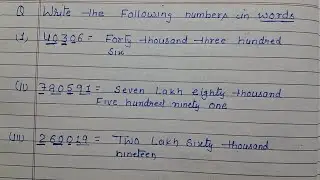 Q Write the Following numbers in words
(I) 40306 = Forty thousand three hundred
six
(II) 780591 = Seven Lakh eighty thousand
Five hundred ninety one
(III) 260019 = Two Lakh Sixty thousand
nineteen